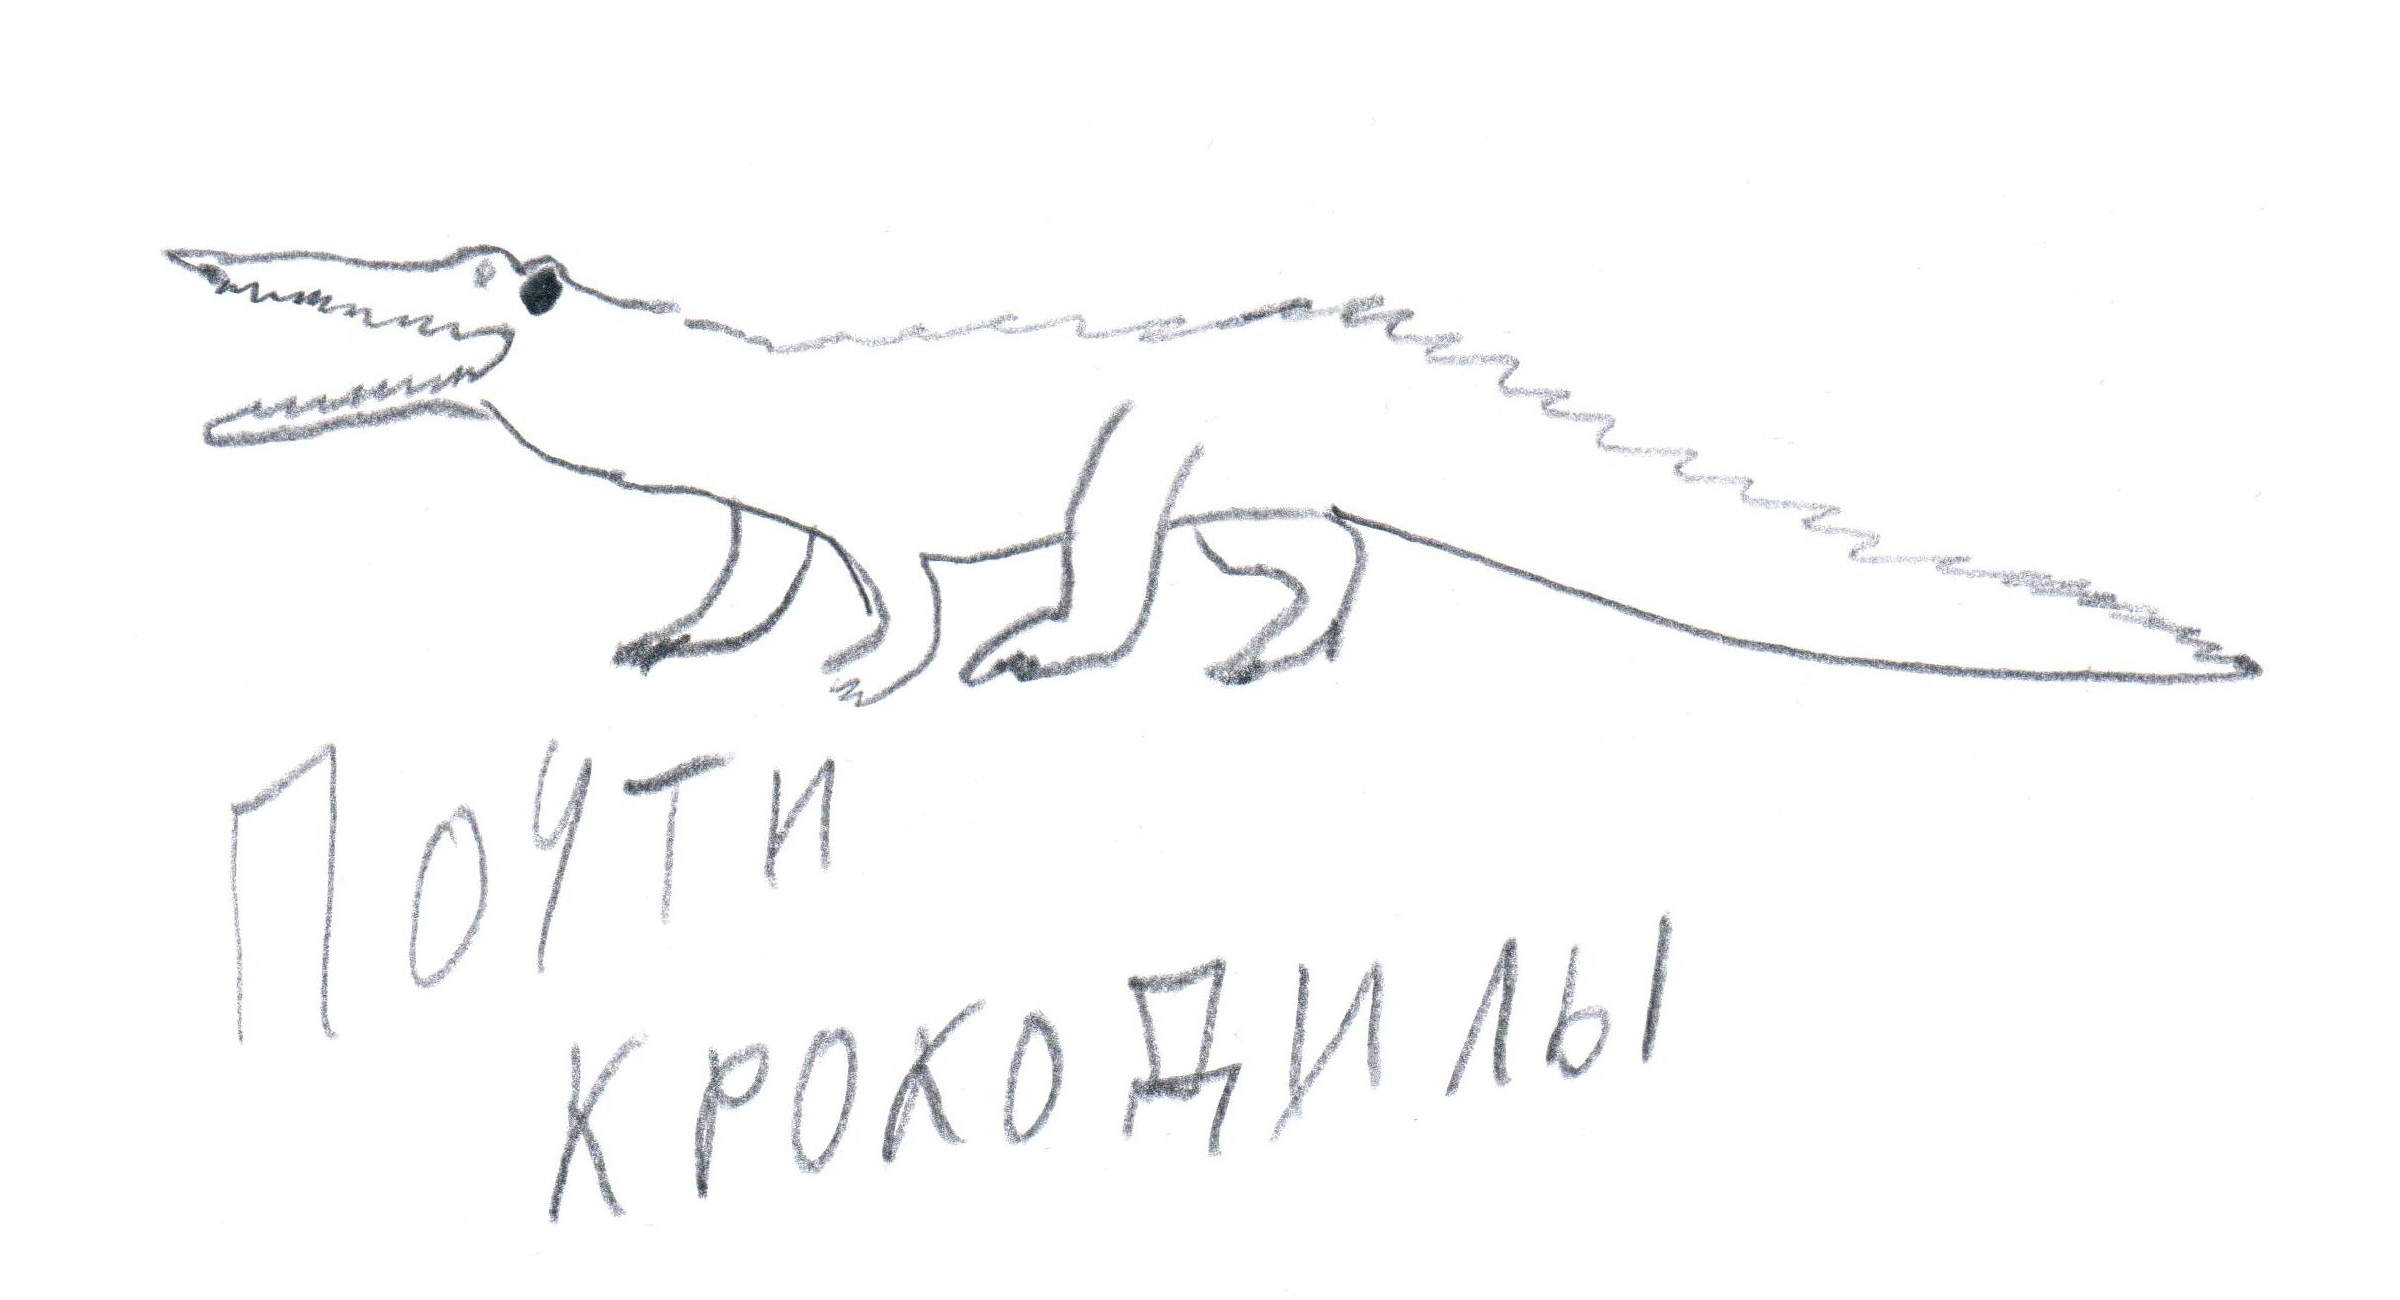 ПОЧТИ
КРОКОДИЛЫ